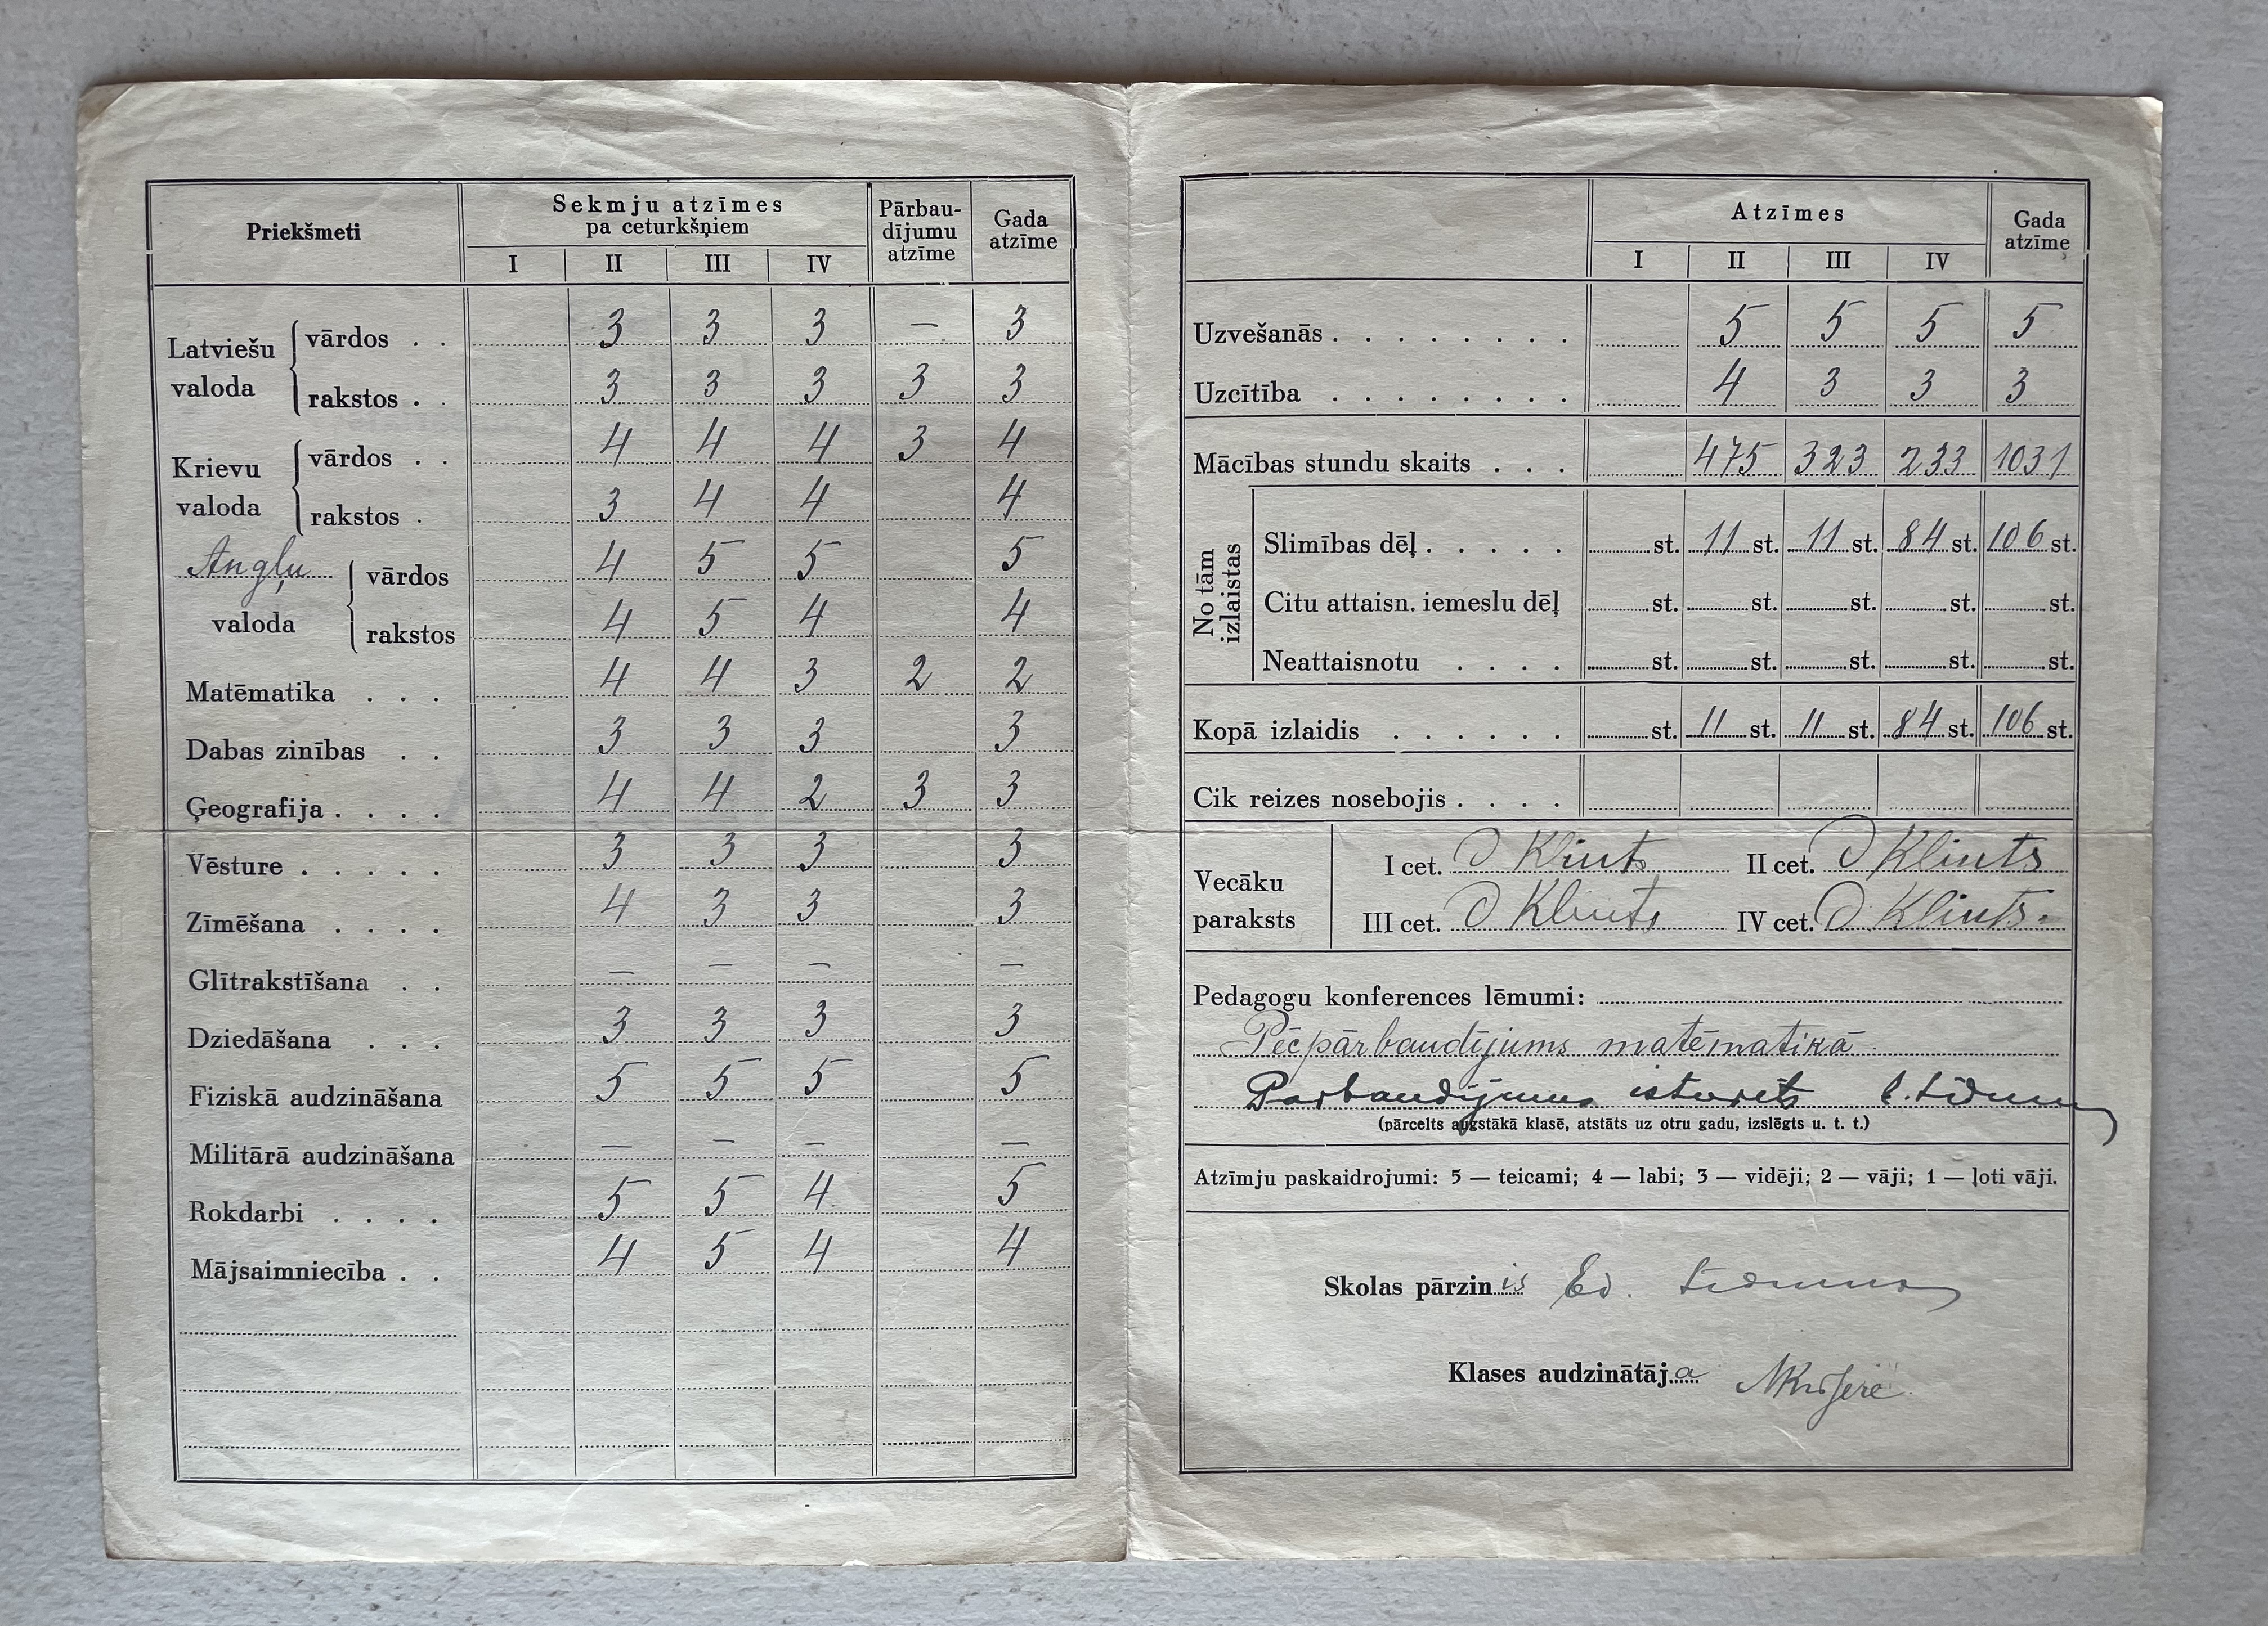 Priekšmeti
Sekmju atzīmes
pa ceturkšņiem
I II III IV
Pārbau-
dījumu
atzīme
Gada
atzīme
Latviešu valoda { vārdos . . 3 3 3 — 3
rakstos . . 3 3 3 3 3
Krievu valoda { vārdos . . 4 4 4 3 4
rakstos . 3 4 4 4
Angļu valoda { vārdos 4 5 5 5
rakstos 4 5 4 4
Matēmatika . . . 4 4 3 2 2
Dabas zinības . . 3 3 3 3
Ģeografija . . . . 4 4 2 3 3
Vēsture . . . . . 3 3 3 3
Zīmēšana . . . . 4 3 3 3
Glītrakstīšana . . — — — —
Dziedāšana . . . 3 3 3 3
Fiziskā audzināšana 5 5 5 5
Militārā audzināšana — — — —
Rokdarbi . . . . 5 5 4 5
Mājsaimniecība . . 4 5 4 4
Atzīmes
I II III IV
Gada
atzīme
Uzvešanās . . . . . . . . 5 5 5 5
Uzcītība . . . . . . . . 4 3 3 3
Mācības stundu skaits . . . 475 323 233 1031
No tām
izlaistas
Slimības dēļ . . . . . st. 11 st. 11 st. 84 st. 106 st.
Citu attaisn. iemeslu dēļ st. st. st. st. st.
Neattaisnotu . . . . st. st. st. st. st.
Kopā izlaidis . . . . . . st. 11 st. 11 st. 84 st. 106 st.
Cik reizes nosebojis . . . .
Vecāku
paraksts
I cet. Klints II cet. Klints
III cet. Klints IV cet. Klints.
Pedagogu konferences lēmumi:
Pēcpārbaudījums matēmatikā
Pārbaudījums izturēts
(pārcelts augstākā klasē, atstāts uz otru gadu, izslēgts u. t. t.)
Atzīmju paskaidrojumi: 5 — teicami; 4 — labi; 3 — vidēji; 2 — vāji; 1 — ļoti vāji.
Skolas pārzinis Ed.
Klases audzinātāja